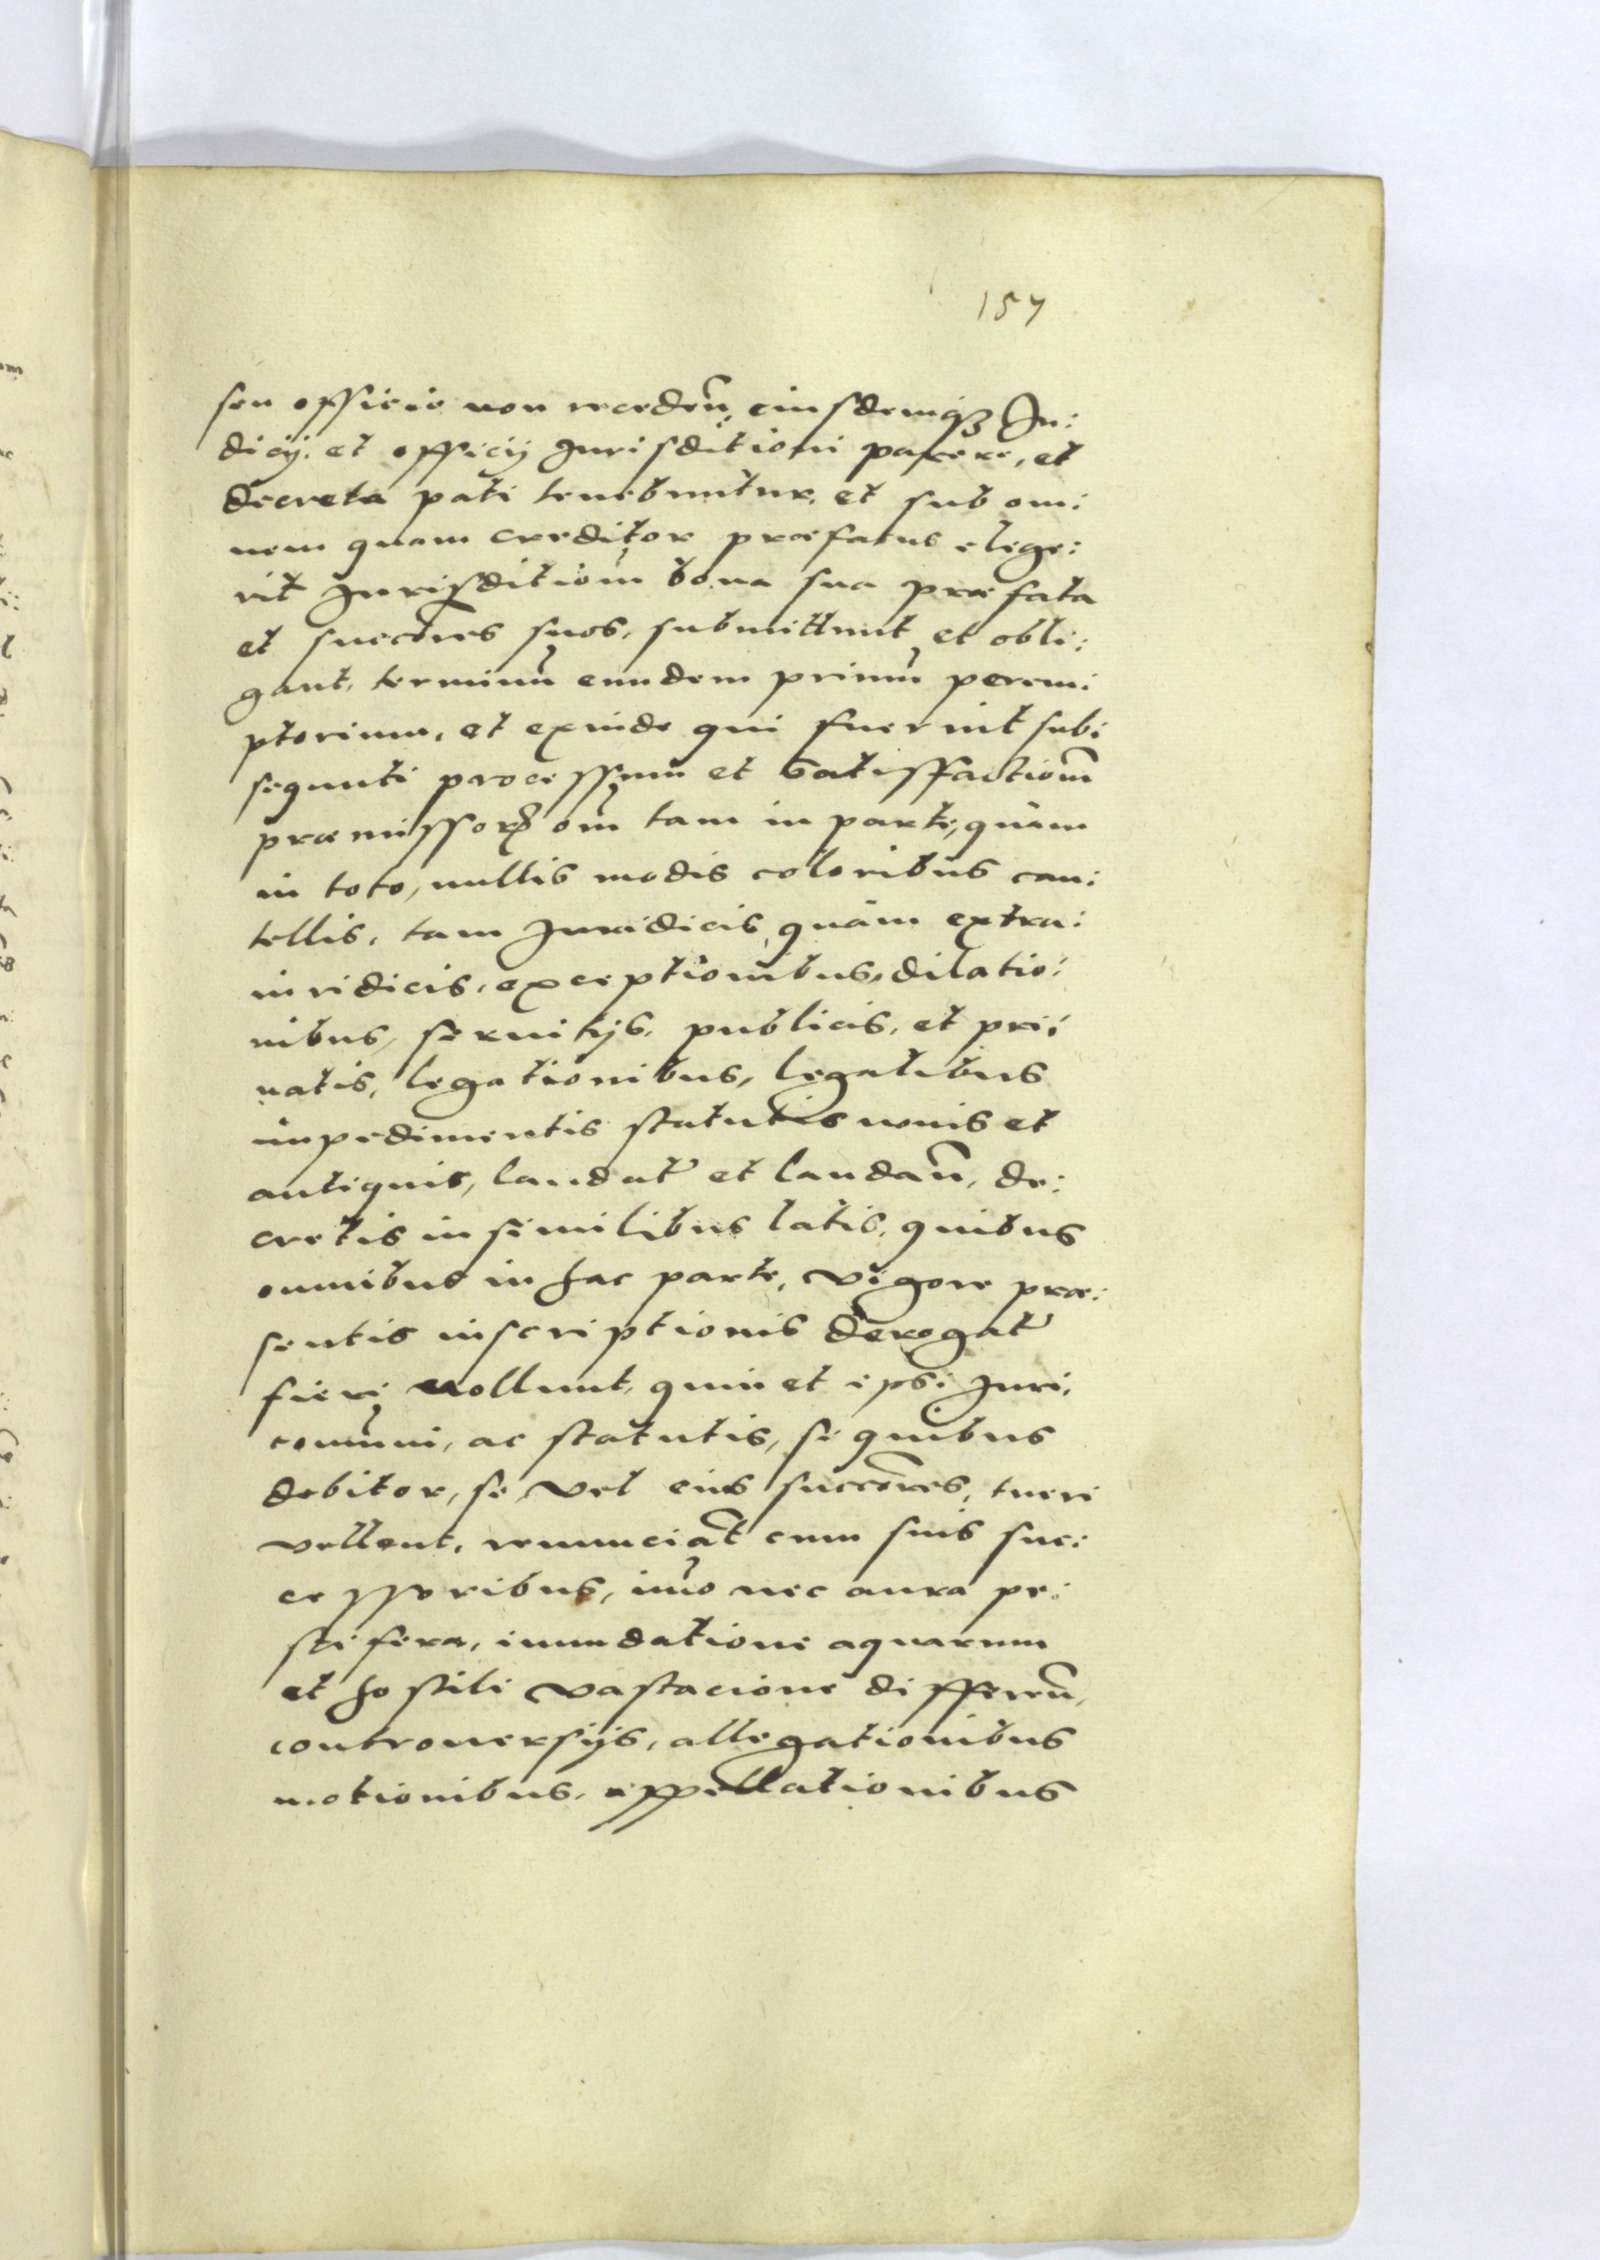 157
seu officio non recedeñ, eiusdemq3 Iu:
dicij. et officij Iurisditioni parere, et
decreta pati tenebuntur. et sub om:
nem quam creditor præfatus elege:
rit Iurisditiom̃ bona sua præfata
et succõres suos, submittunt et obli:
gant, terminũ eundem primũ perem:
ptorium, et exinde qui fuerint sub:
sequuti processum et Satisffactiom̃
præmissorꝝ om̃ tam in parte, quàm
in toto, nullis modis coloribus cau:
tellis, tam Iuridicis, quàm extra:
iuridicis, exceptionibus, dilatio:
nibus, seruitijs, publicis, et pri:
uatis, legationibus, legalibus
impedimentis statutis nouis et
antiquis, laudat̃ et laudañ, de:
cretis in similibus latis, quibus
omnibus in hac parte, vigore præ:
sentis inscriptionis derogat̃
fieri uollunt, quin et ipsi Iuri,
com̃uni, ac statutis, si quibus
debitor, se vel eius succõres, tueri
vellent, renunciãt cum suis suc:
cessoribus, im̃o nec aura pe:
stifera, inundatione aquarum
et hostili vastacione differeñ,
controuersijs, allegationibus
motionibus, appellationibus